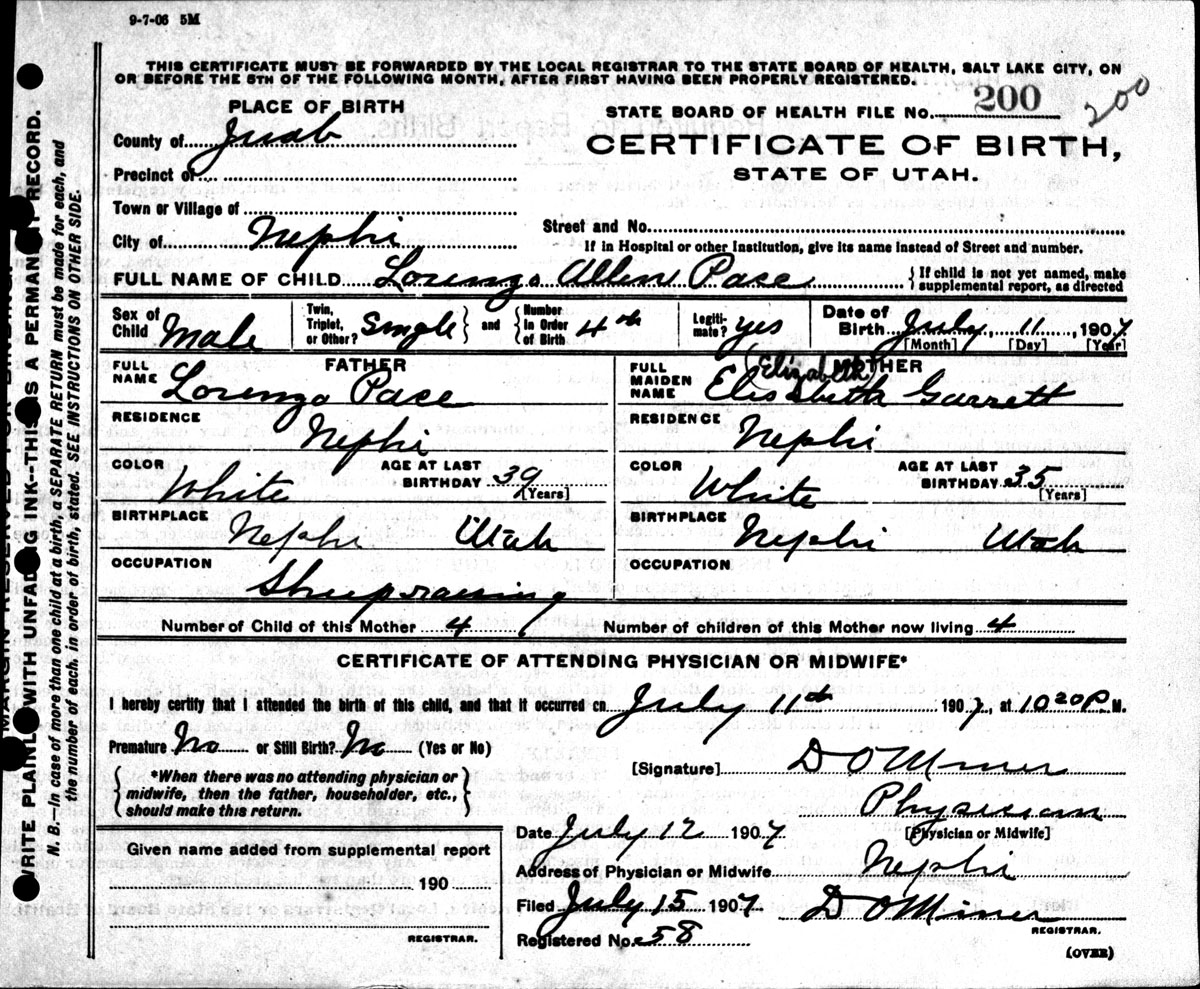 9-7-06 5M
THIS CERTIFICATE MUST BE FORWARDED BY THE LOCAL REGISTRAR TO THE STATE BOARD OF HEALTH, SALT LAKE CITY, ON
OR BEFORE THE 5TH OF THE FOLLOWING MONTH, AFTER FIRST HAVING BEEN PROPERLY REGISTERED.
PLACE OF BIRTH
STATE BOARD OF HEALTH FILE NO. 200
200
County of Juab
CERTIFICATE OF BIRTH,
Precinct of
STATE OF UTAH.
Town or Village of
Street and No.
City of Nephi
If in Hospital or other Institution, give its name instead of Street and number.
FULL NAME OF CHILD Lorenzo Allen Pace { If child is not yet named, make supplemental report, as directed
Sex of Child Male Twin, Triplet, or Other? Single } and { Number in Order of Birth 4th Legiti-mate? yes Date of Birth July, 11, 1907
[Month] [Day] [Year]
FULL NAME FATHER Lorenzo Pace
FULL MAIDEN NAME MOTHER (Elizabeth) Elisabeth Garrett
RESIDENCE Nephi
RESIDENCE Nephi
COLOR White AGE AT LAST BIRTHDAY 39 [Years]
COLOR White AGE AT LAST BIRTHDAY 35 [Years]
BIRTHPLACE Nephi Utah
BIRTHPLACE Nephi Utah
OCCUPATION Sheepraising
OCCUPATION
Number of Child of this Mother 4 Number of children of this Mother now living 4
CERTIFICATE OF ATTENDING PHYSICIAN OR MIDWIFE*
I hereby certify that I attended the birth of this child, and that it occurred on July 11th 1907, at 10 20 P. M.
Premature No or Still Birth? No (Yes or No)
{ *When there was no attending physician or
midwife, then the father, householder, etc.,
should make this return. }
[Signature] D O Miner
Physician
[Physician or Midwife]
Date July 12 1907
Given name added from supplemental report
Address of Physician or Midwife Nephi
190
Filed July 15 1907 D O Miner
REGISTRAR.
REGISTRAR.
Registered No. 58
(OVER)
MARGIN RESERVED FOR BINDING.
WRITE PLAINLY WITH UNFADING INK--THIS IS A PERMANENT RECORD.
N. B.—In case of more than one child at a birth, a SEPARATE RETURN must be made for each, and
the number of each, in order of birth, stated. SEE INSTRUCTIONS ON OTHER SIDE.